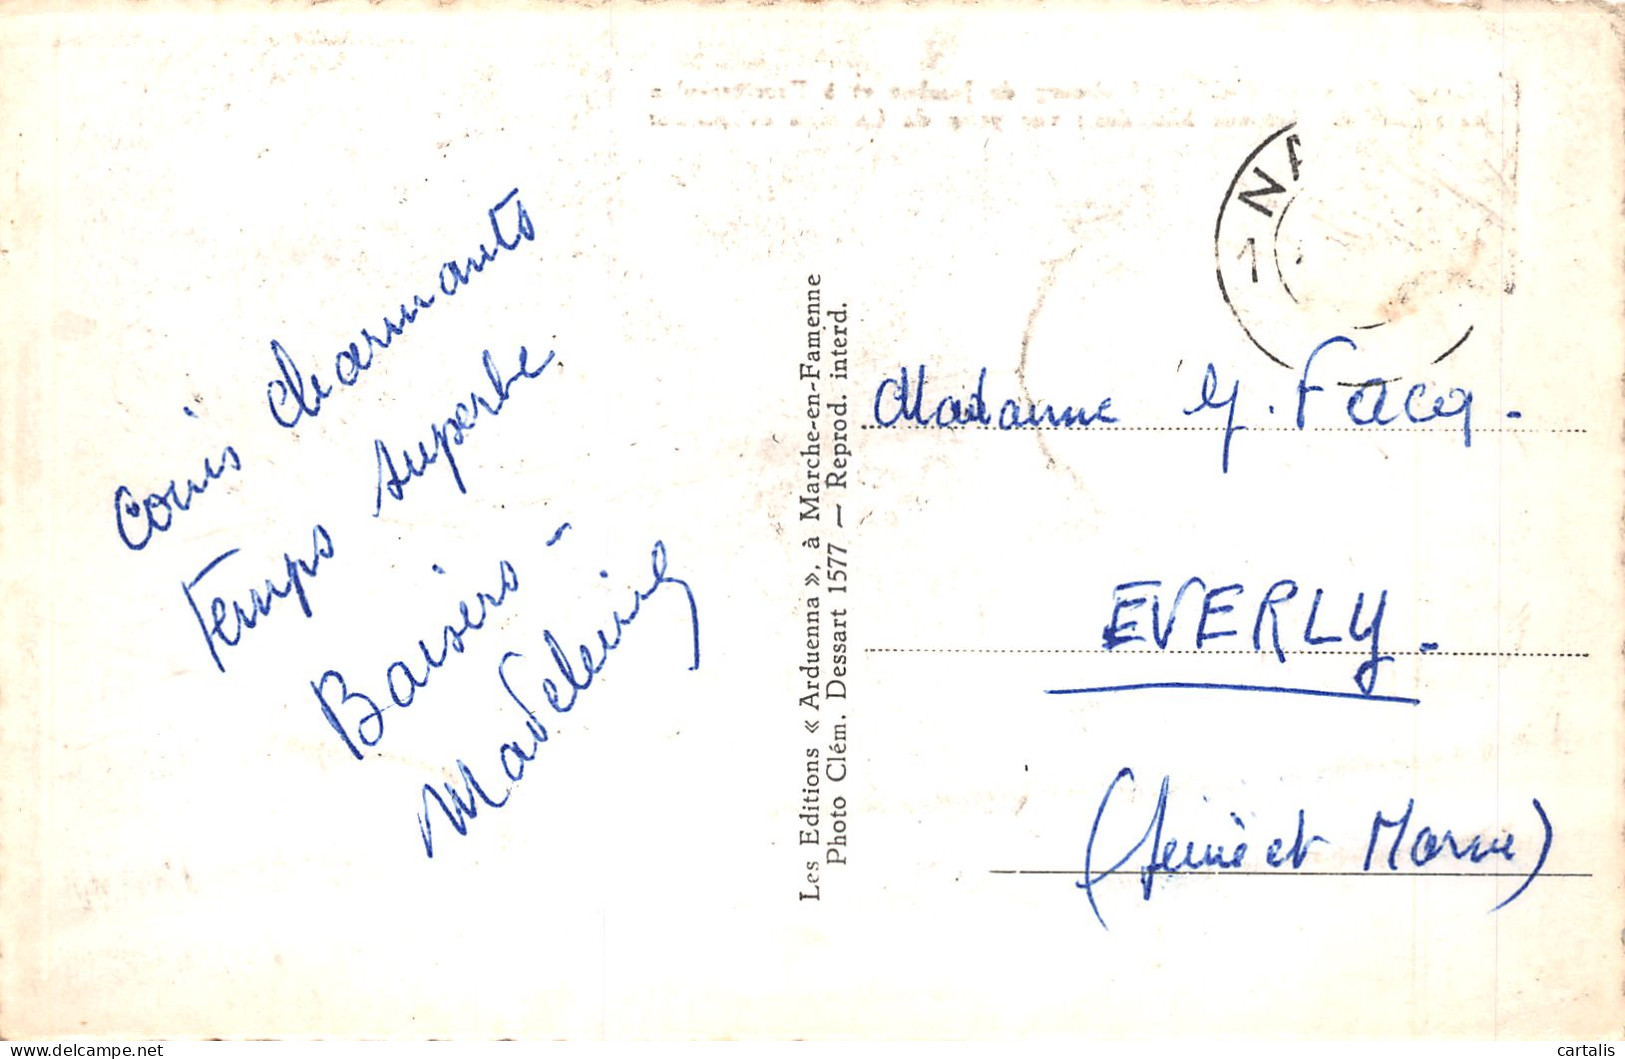 coins charmants
Temps superbe
Baisers -
Madeleine
Les Editions « Arduenna », à Marche-en-Famenne
Photo Clém. Dessart 1577 — Reprod. interd.
NA
1
Madame G. Facq -
EVERLY -
(Seine et Marne)
delcampe.net/colonelmoutarde
cartalis